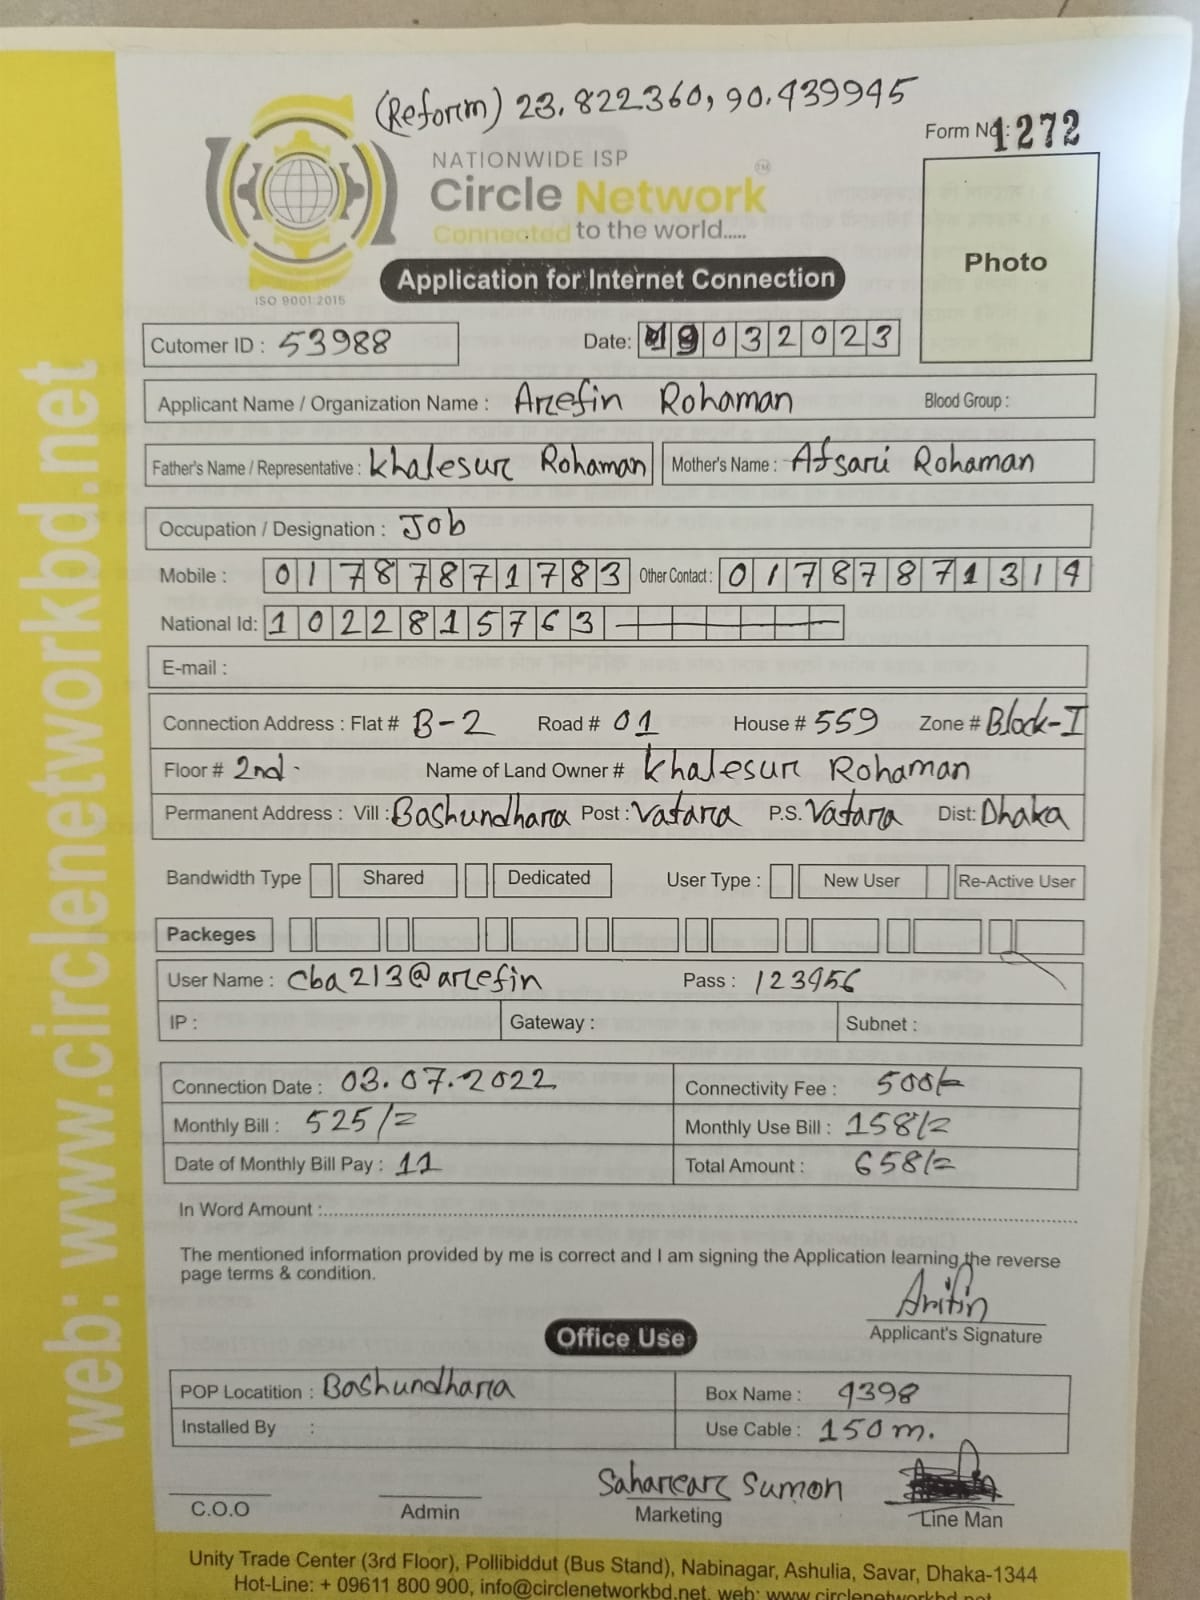 (Reform) 23.822360, 90.439945
Form No: 1272
NATIONWIDE ISP
Circle Network TM
Connected to the world.....
ISO 9001:2015
Application for Internet Connection
Photo
Cutomer ID : 53988 Date: 032023
Applicant Name / Organization Name : Arefin Rohaman Blood Group :
Father's Name / Representative : Khalesur Rohaman Mother's Name : Afsari Rohaman
Occupation / Designation : Job
Mobile : 01787871783 Other Contact : 01787871314
National Id: 1022815763
E-mail :
Connection Address : Flat # B-2 Road # 01 House # 559 Zone # Block-I
Floor # 2nd. Name of Land Owner # Khalesur Rohaman
Permanent Address : Vill : Bashundhara Post : Vatara P.S. Vatara Dist: Dhaka
Bandwidth Type Shared Dedicated User Type : New User Re-Active User
Packeges
User Name : cba213@arefin Pass : 123456
IP : Gateway : Subnet :
Connection Date : 03.07.2022 Connectivity Fee : 500/=
Monthly Bill : 525/= Monthly Use Bill : 158/=
Date of Monthly Bill Pay : 11 Total Amount : 658/=
In Word Amount :
The mentioned information provided by me is correct and I am signing the Application learning the reverse
page terms & condition.
Arifin
Applicant's Signature
Office Use
POP Locatition : Bashundhara Box Name : 4398
Installed By : Use Cable : 150 m.
Saharear Sumon
C.O.O Admin Marketing Line Man
Unity Trade Center (3rd Floor), Pollibiddut (Bus Stand), Nabinagar, Ashulia, Savar, Dhaka-1344
Hot-Line: + 09611 800 900, info@circlenetworkbd.net, web: www.circlenetworkbd.net
web: www.circlenetworkbd.net